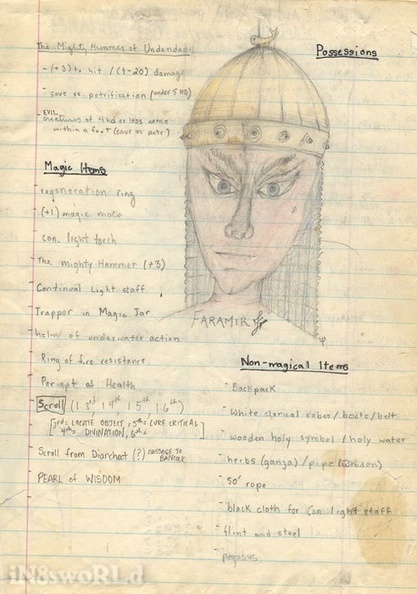 The Mighty Hammer of
- (+3) to hit / (1-20) damage
- save vs. petrification (under 5 HD)
- EVIL creatures of 4 hd or less
within a foot (save vs petr.)
Possessions
Magic Items
- regeneration ring
(+1) magic mace
con. light torch
The Mighty Hammer (+3)
Continual Light staff
Trapper in Magic Jar
of underwater action
Ring of fire resistance
of Health
Scroll (1 3rd, 1 4th, 1 5th, 1 6th)
3rd = LOCATE OBJECT, 5th = CURE CRITICAL
4th = DIVINATION, 6th =
Scroll from (?) PASSAGE TO
PEARL OF WISDOM
FARAMIR
Non-magical Items
- Backpack
- White clerical robes / boots / belt
- wooden holy symbol / holy water
- herbs (ganja) / pipe (wooden)
- 50' rope
- black cloth for con light staff
- flint and steel
- pegasus
iN8swoRLd